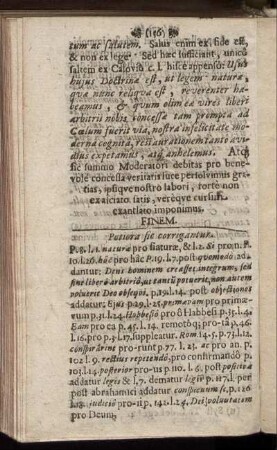 (156)
tum ac salutem. Salus enim ex fide est,
& non ex lege. Sed hæc sufficiant, unico
saltem ex Calovio c. l. hisce appenso: Usus
hujus Doctrinæ est, ut legem naturæ,
quæ nunc reliqua est, reverenter ha-
beamus, & quum olim ea vires liberi
arbitrii nobis concessæ tam prompta ad
Cœlum fuerit via, nostra infelicitate mo-
derna cognita, restaurationem tanto avi-
dius expetamus, atq; anhelemus. Atq;
sic summo Moderatori debitas pro bene-
vole concessa veritatis luce persolvimus gra-
tias, ipsique nostro labori, forte non
exasciato satis, vereque cursim
exantlato imponimus.
FINEM.
Potiora sic corrigantur.
P.8. l.1. naturæ pro staturæ, & l.2. di pro n. P.
10. l.26. hoc pro hâc P.19. l.7. post quomodo ad-
dantur: Deus hominem creasset integrum, seu
sine libero arbitrio, ut tantum potuerit, non autem
voluerit Deo obsequi. p.19. l.14. post objectiones
addatur; Ejus p.29. l.25. primævam pro primæ-
vum p.31. l.24. Hobbesio pro û Hobbesi p.35. l.4.
Eam pro ea p.45. l.14. remotos pro-ta p.46.
l.16. pro p.3. l.17. suppleatur. Rom. 14-5. p.73. l.12.
conspirârint pro-runt p.77. l. 23. ac pro an p.
102 l. 9. rectius repetendo, pro confirmando p.
103. l.14. posterior pro-us p. 110. l. 6. post positiva
addatur legis & l.7. dematur legis p. 117. l. pen.
post abrahamici addatur conspicuum se. p. 126
l.8. judicio pro-ii p. 141. l.24. Dei voluntatem
pro Deum,